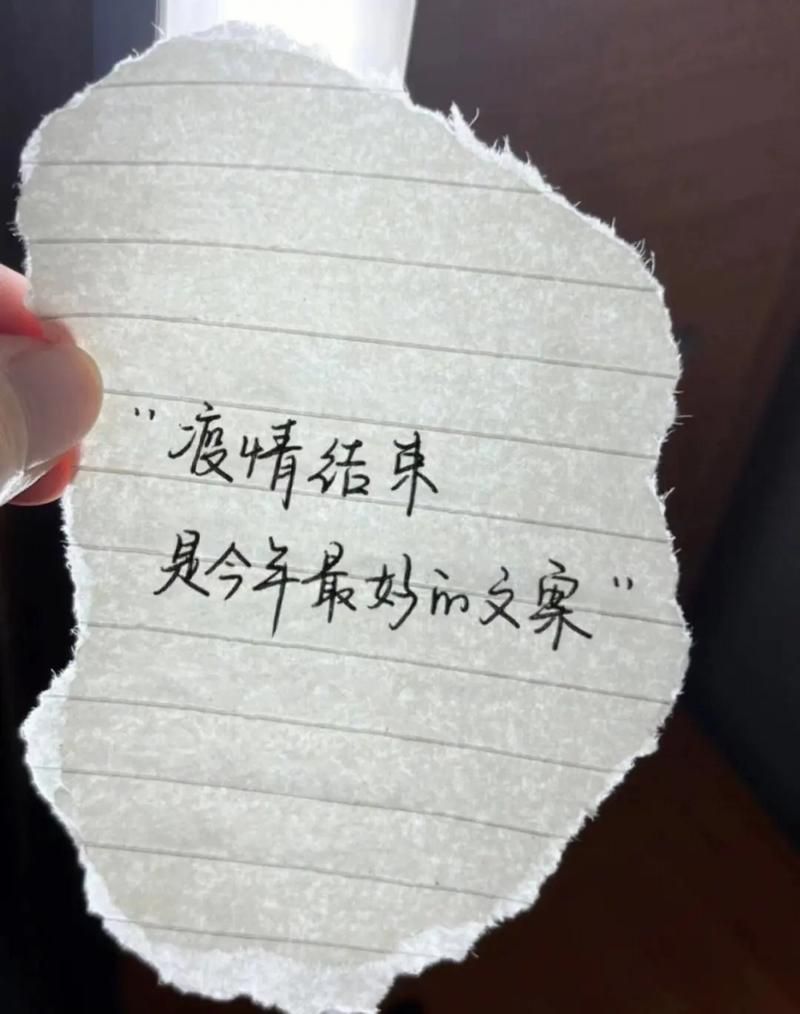 "疫情结束
是今年最好的文案"